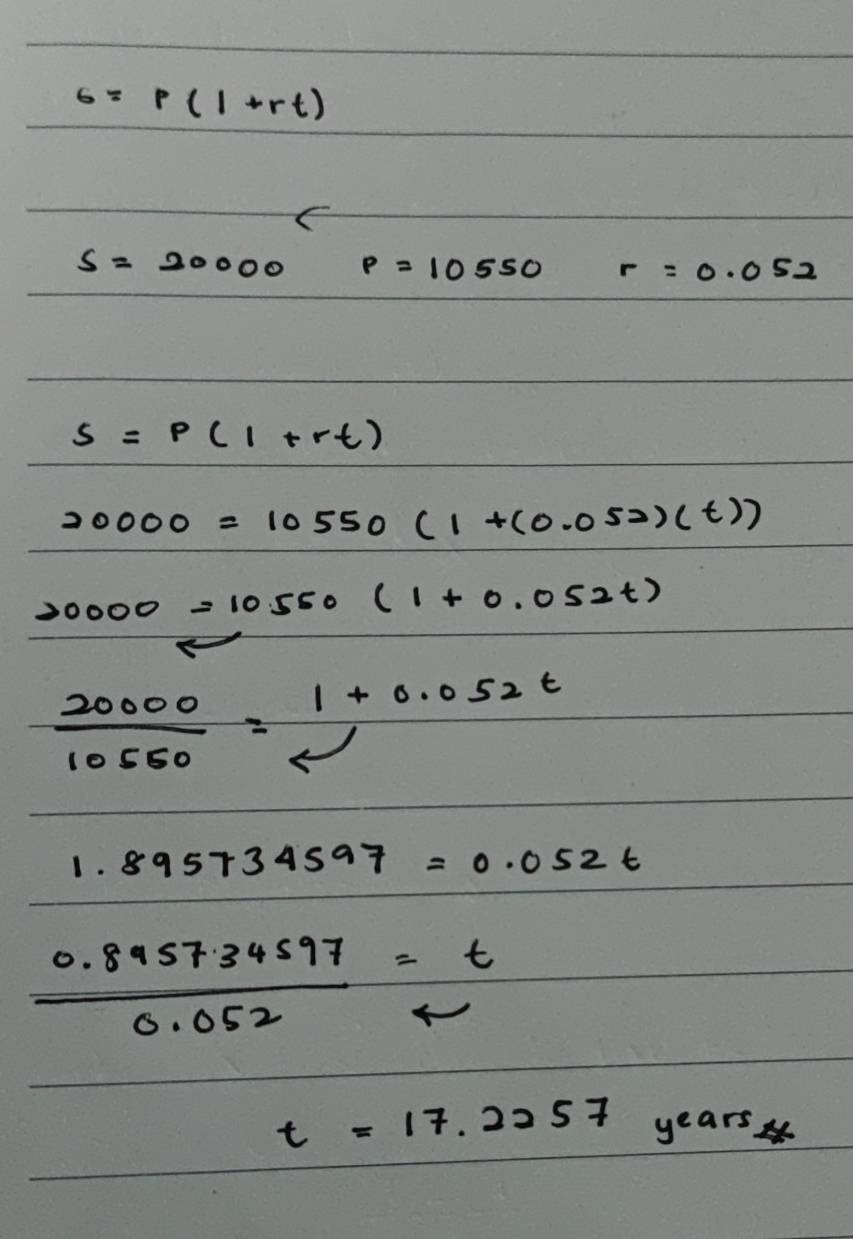 S = P(1 + rt)
S = 20000 P = 10550 r = 0.052
S = P(1 + rt)
20000 = 10550 (1 + (0.052)(t))
20000 = 10550 (1 + 0.052t)
20000 / 10550 = 1 + 0.052 t
1.895734597 = 0.052 t
0.895734597 / 0.052 = t
t = 17.2257 years